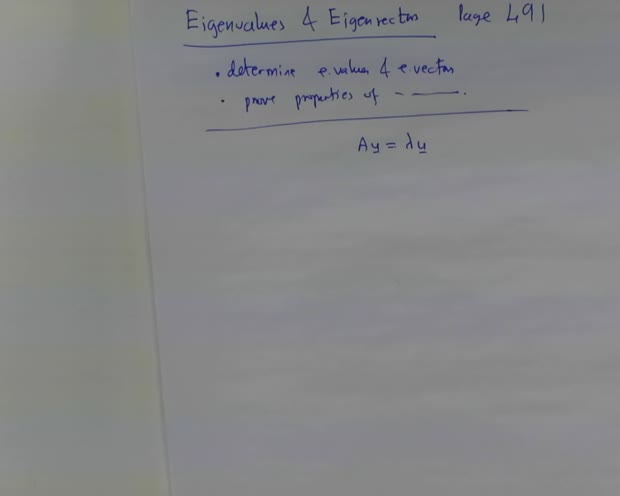 Eigenvalues & Eigenvectors Page 491
• determine e.values & e.vectors
• prove properties of - ——.
Au = λu